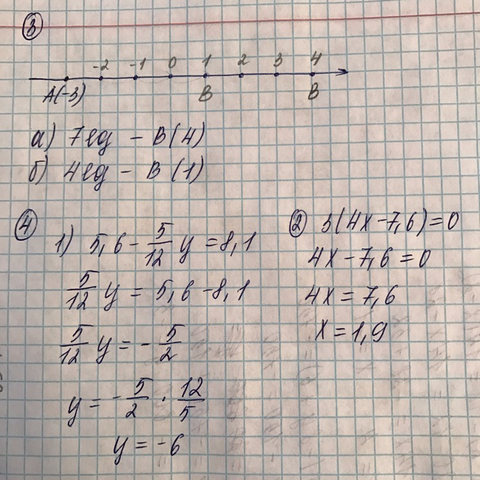 ③
-2 -1 0 1 2 3 4
A(-3) B B
а) 7 ед - B(4)
б) 4 ед - B(1)
④
1) 5,6 - 5/12 y = 8,1
5/12 y = 5,6 - 8,1
5/12 y = - 5/2
y = - 5/2 · 12/5
y = -6
② 3(4x - 7,6) = 0
4x - 7,6 = 0
4x = 7,6
x = 1,9